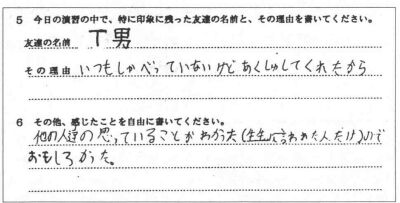 5 今日の演習の中で、特に印象に残った友達の名前と、その理由を書いてください。
友達の名前 T男
その理由 いつもしゃべっていないけどあくしゅしてくれたから
6 その他、感じたことを自由に書いてください。
他の人達の思っていることがわかった(先生に言われた人だけ)ので
おもしろかった。